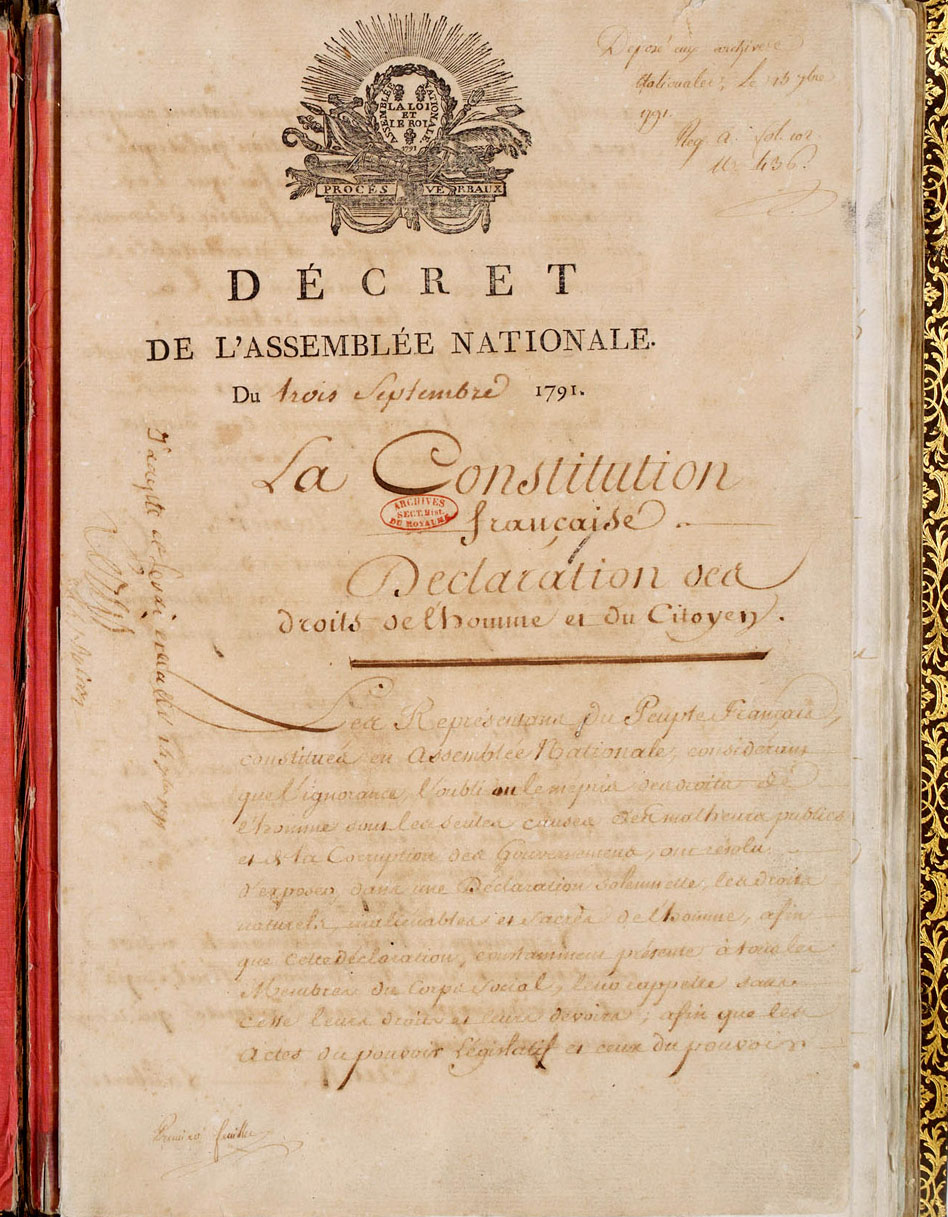 ASSEMBLÉE NATIONALE
LA LOI
ET
LE ROI
1791
PROCÉS VERBAUX
Deposé aux archives
Nationales, Le 13 7bre
1791.
Reg. A. fol. 102.
N.º 436.
DÉCRET
DE L'ASSEMBLÉE NATIONALE.
Du trois Septembre 1791.
La Constitution
française.
ARCHIVES
SECT. Hist.
DU ROYAUME
Déclaration des
droits de l'homme et du Citoyen.
Les Représentans du Peuple Français,
constitués en Assemblée Nationale, considérant
que l'ignorance, l'oubli ou le mépris des droits de
l'homme sont les seules causes des malheurs publics
et de la Corruption des Gouvernemens, ont résolu
d'exposer, dans une Déclaration solemnelle, les droits
naturels, inaliénables et sacrés de l'homme, afin
que cette déclaration, constamment présente à tous les
Membres du Corps Social, leur rappelle sans
cesse leurs droits et leurs devoirs; afin que les
Actes du pouvoir Législatif et ceux du pouvoir
J'accepte et ferai exécuter
Premier feuillet